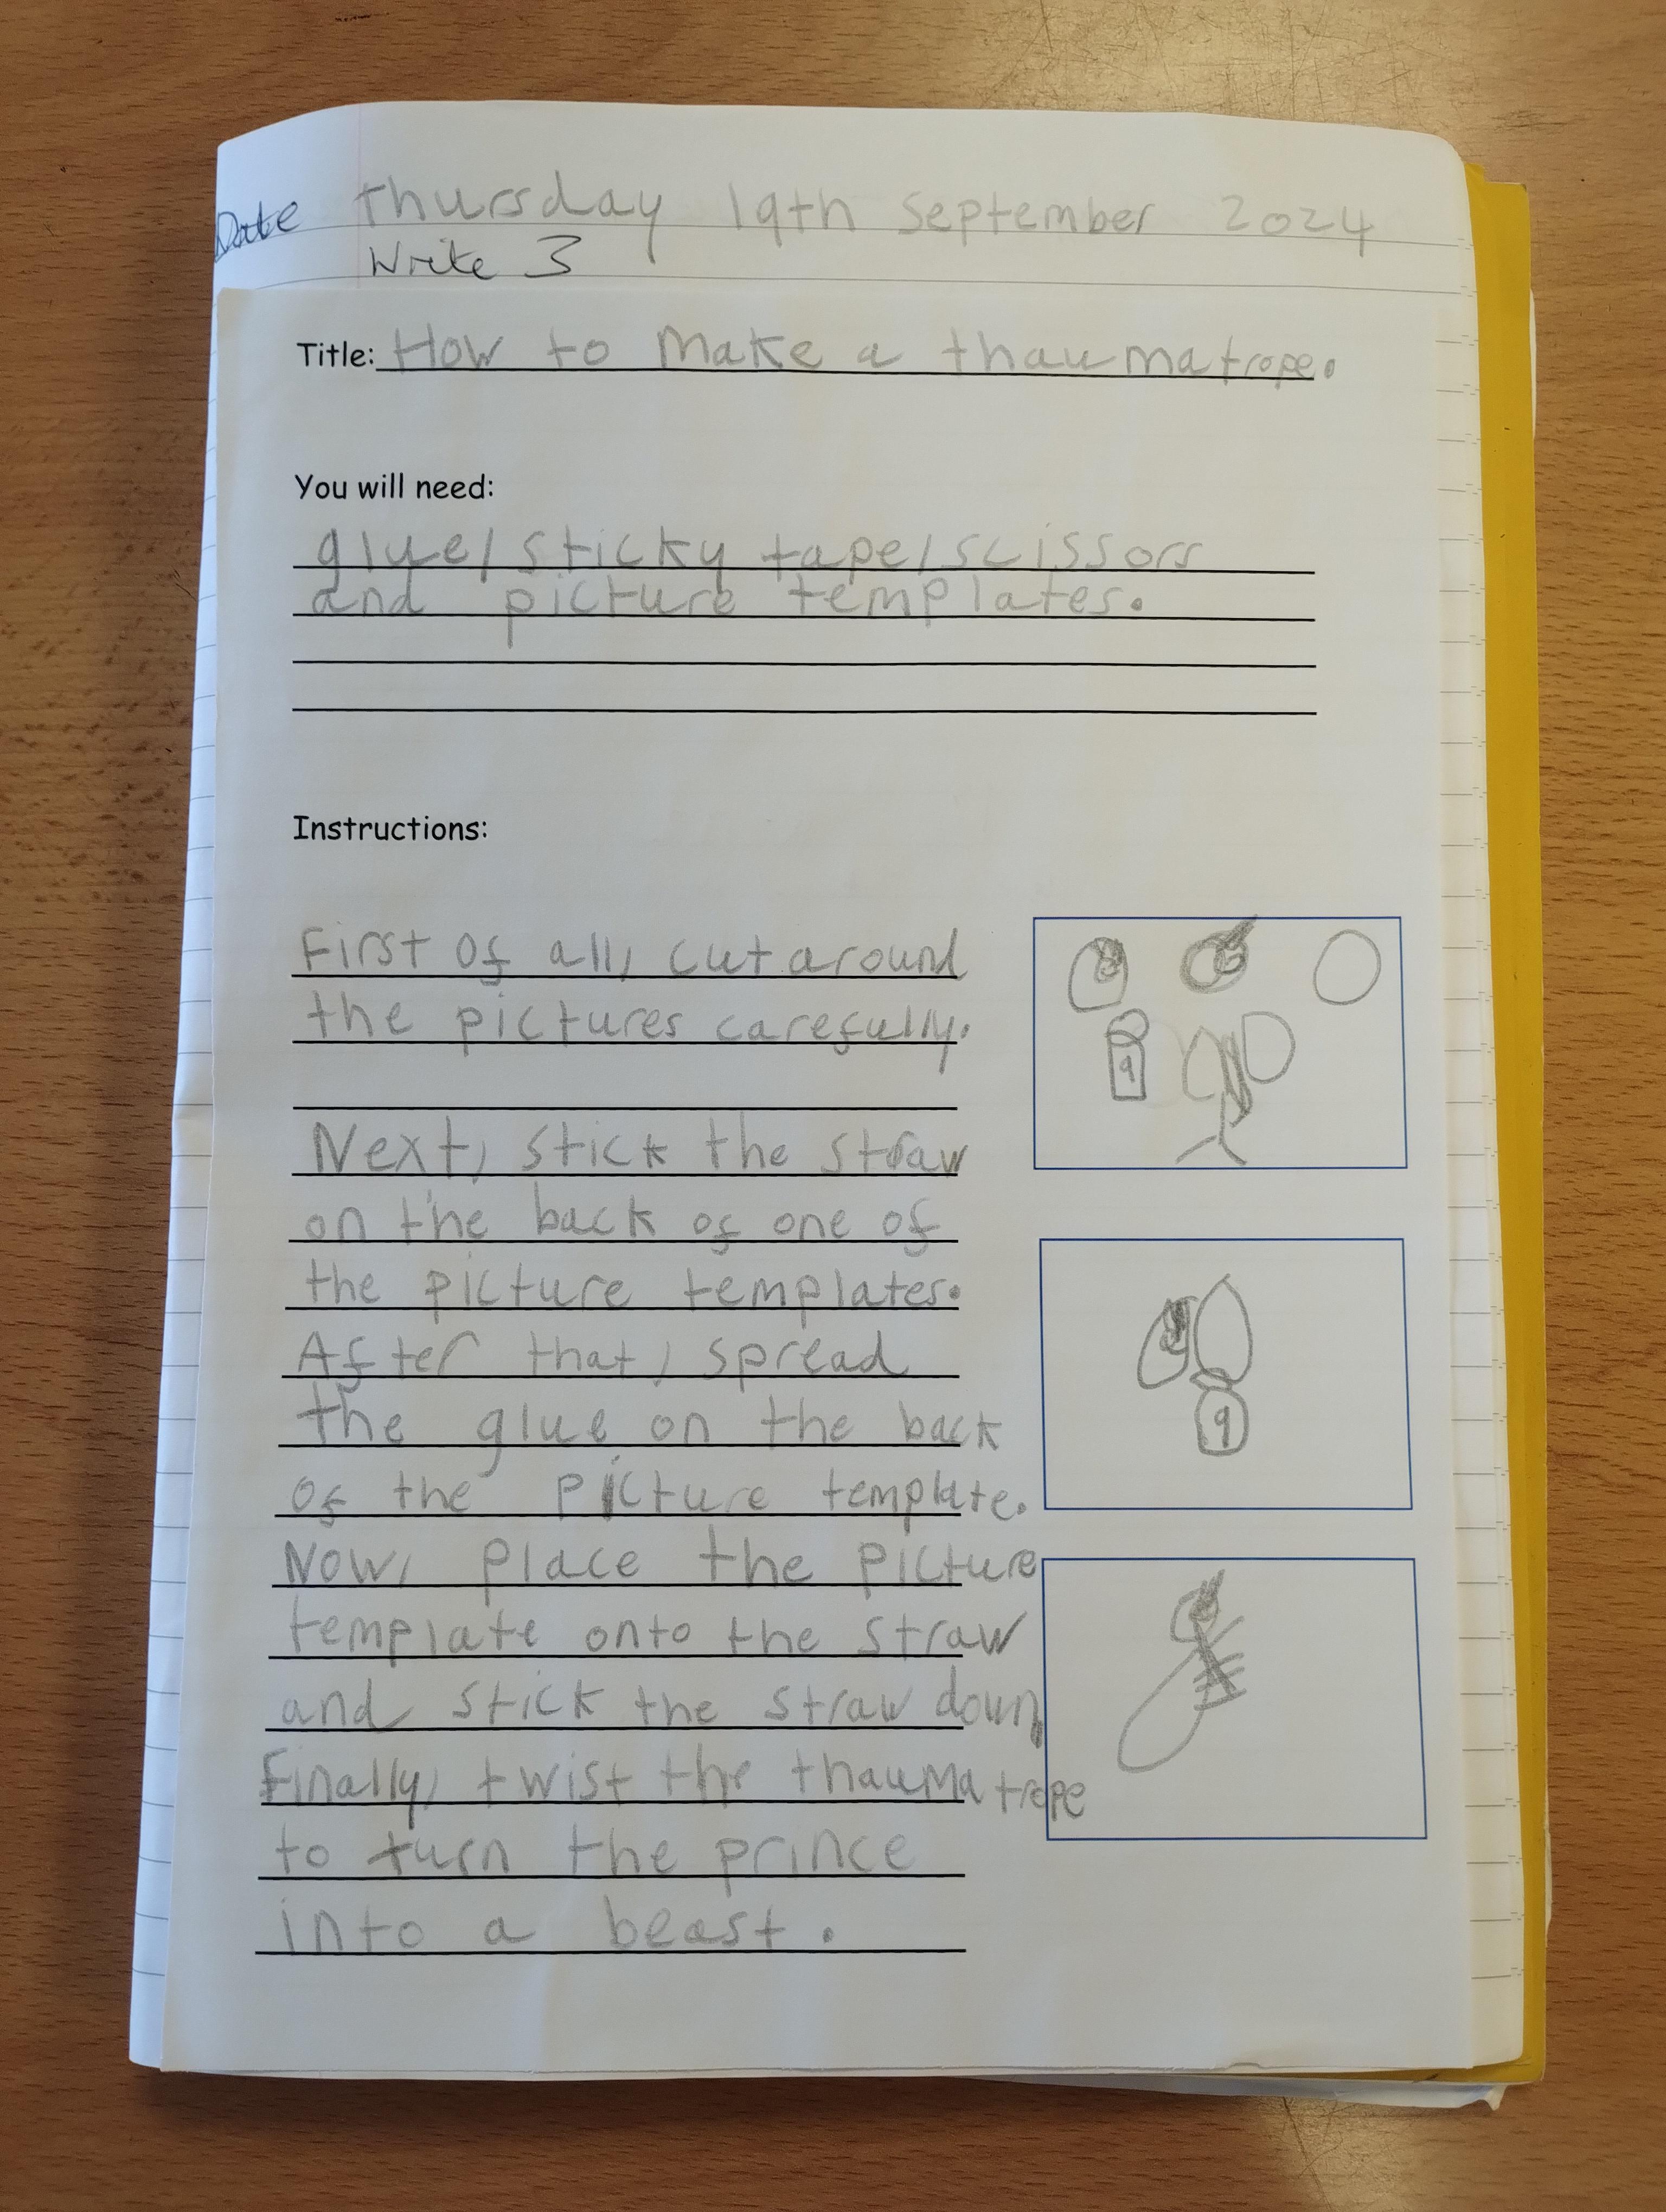 Date Thursday 19th September 2024
Write 3
Title: How to make a thaumatrope.
You will need:
glue/sticky tape/scissors
and picture templates.
Instructions:
First of all, cut around
the pictures carefully.
Next, stick the straw
on the back of one of
the picture templates.
After that, spread
the glue on the back
of the picture template.
Now, place the picture
template onto the straw
and stick the straw down
Finally, twist the thaumatrope
to turn the prince
into a beast.
9
9